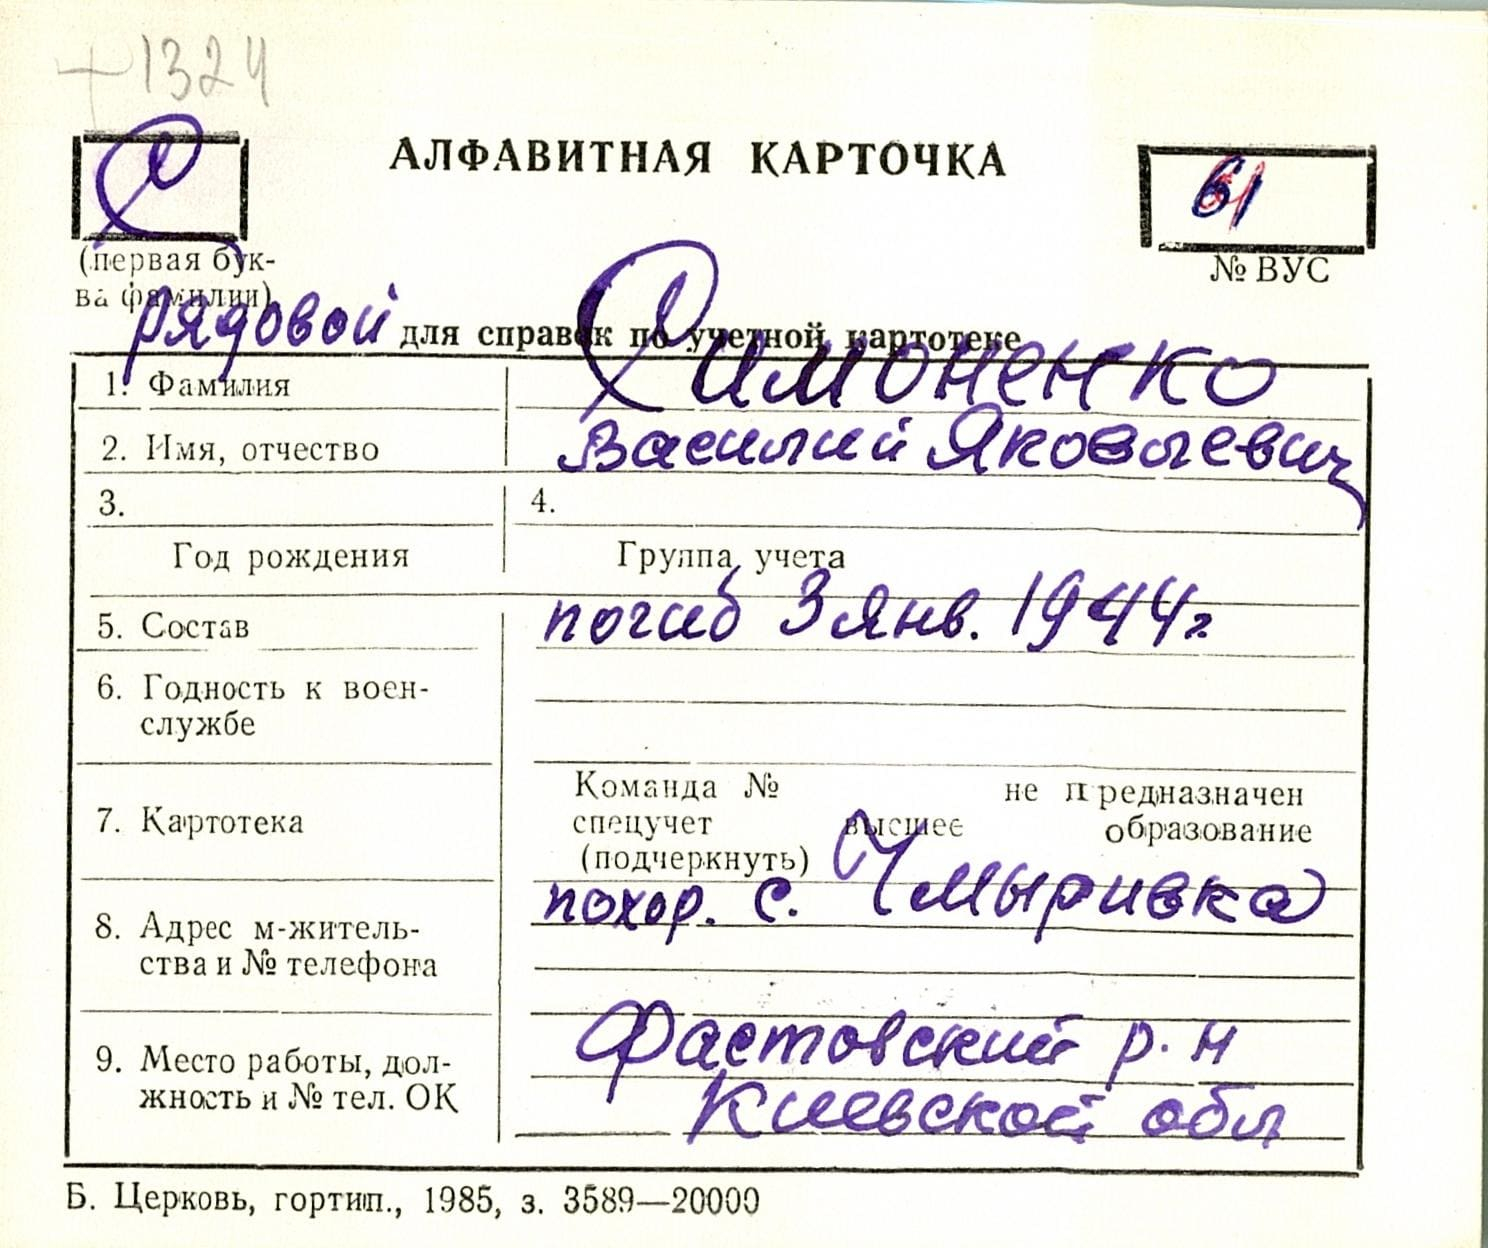 +1324
С
АЛФАВИТНАЯ КАРТОЧКА
61
(первая бук-
ва фамилии)
№ ВУС
рядовой для справок по учетной картотеке
1. Фамилия Симоненко
2. Имя, отчество Василий Яковлевич
3. 4.
Год рождения Группа учета
5. Состав погиб 3 янв. 1944 г
6. Годность к воен-
службе
Команда № не предназначен
7. Картотека спецучет высшее образование
(подчеркнуть)
похор. с. Чмыривка
8. Адрес м-житель-
ства и № телефона
Фастовский р-н
9. Место работы, дол-
жность и № тел. ОК Киевской обл
Б. Церковь, гортип., 1985, з. 3589—20000